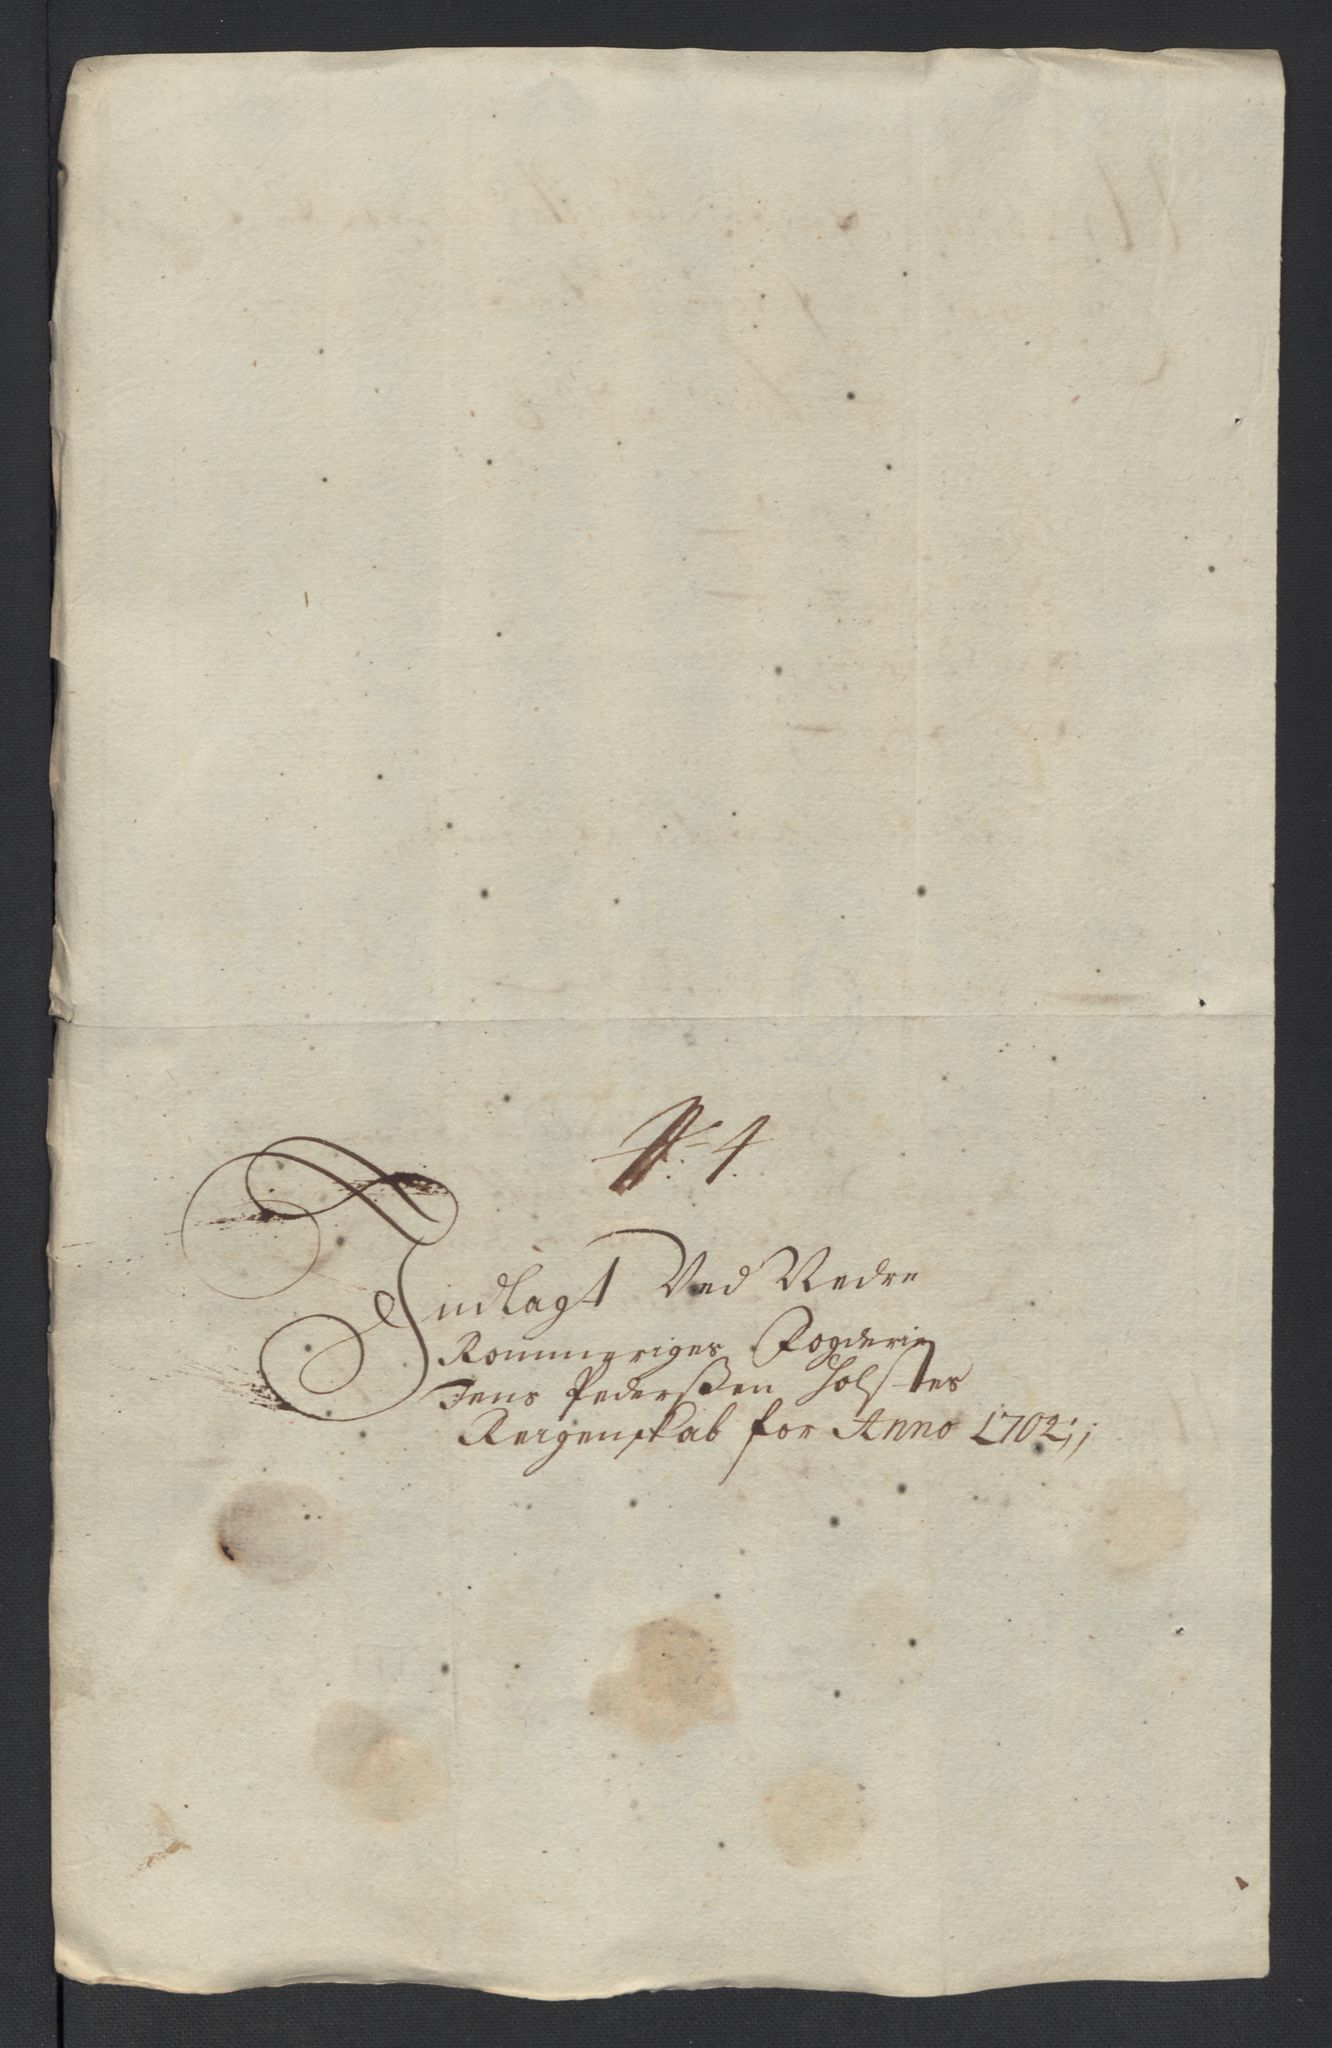 N: 4.
Indlagt Ved Nedre
Rommeriges Fogderie
Jens Pederßen Holstes
Reigenskab for Anno 1702;;